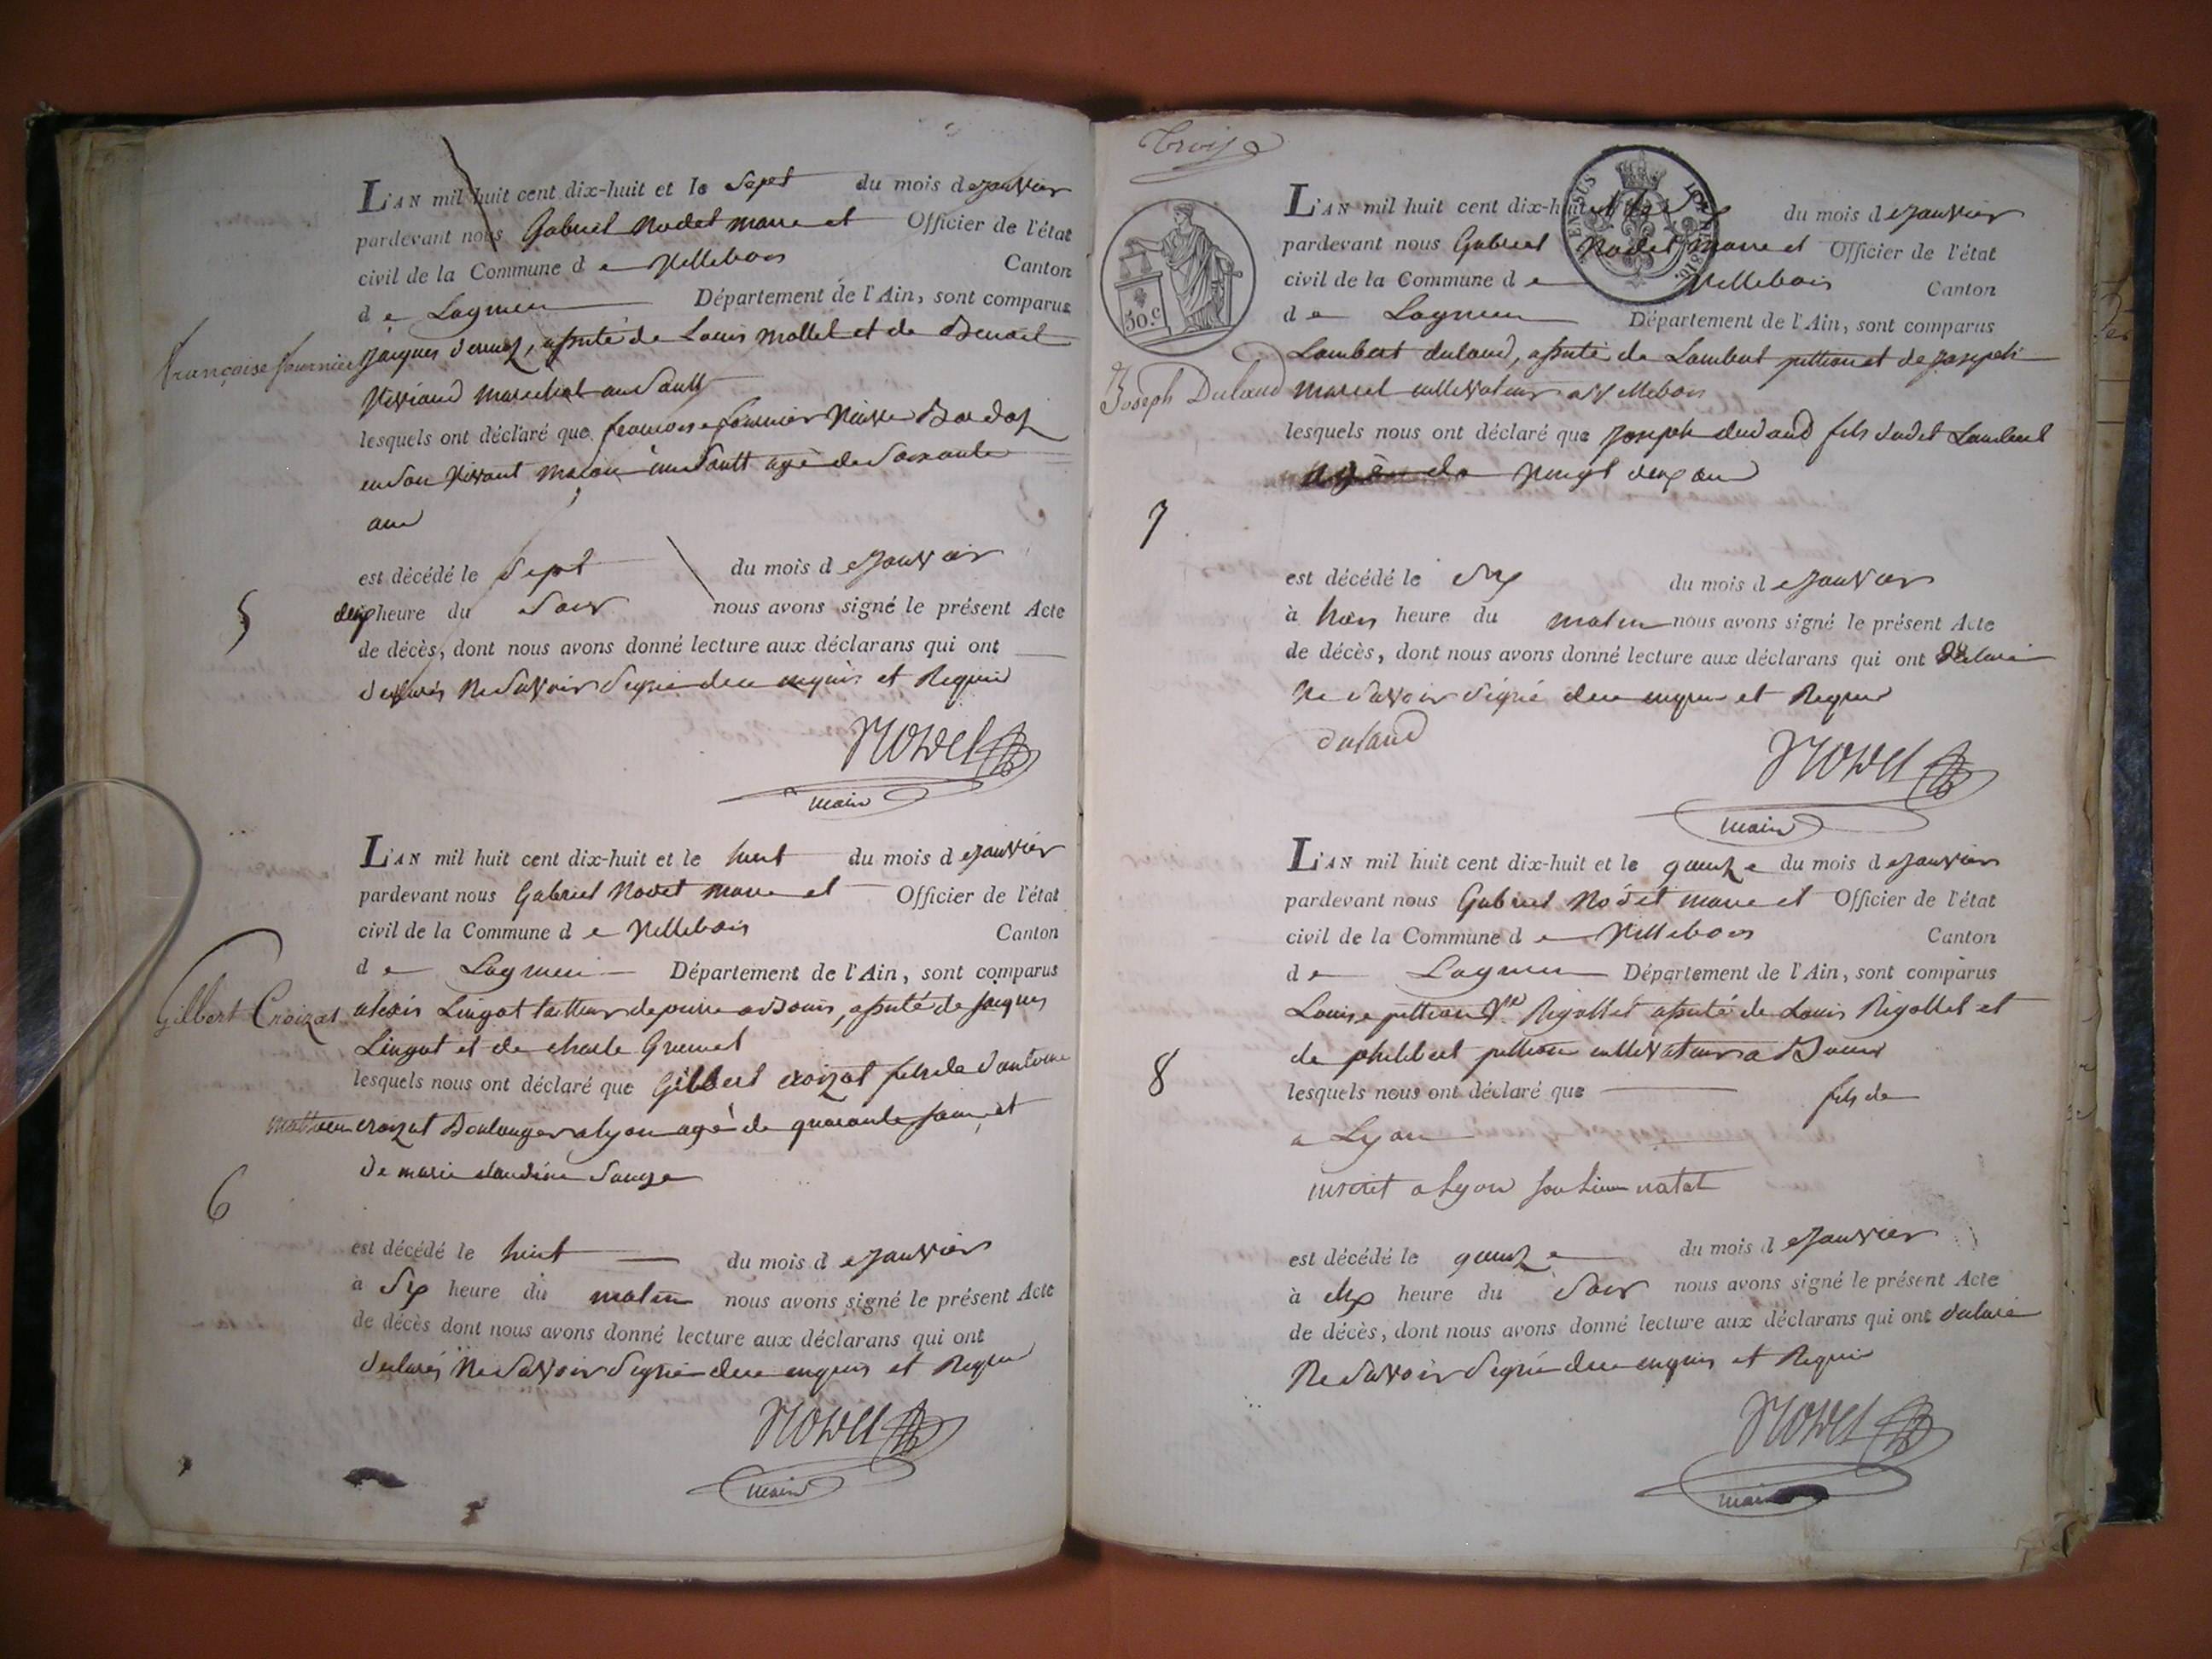 L'AN mil huit cent dix-huit et le Sept du mois de Janvier
pardevant nous Gabriel Nodet maire et Officier de l'état
civil de la Commune de Villebois Canton
de Lagnieu Département de l'Ain, sont comparus
françoise fournier
Jacques assisté de Louis Mollet et de Benoit
Viviand marechal au Sault
lesquels ont déclaré que françoise fournier
en son vivant au Sault agé de Soixante
ans
est décédé le Sept du mois de Janvier
5
deux heure du Soir nous avons signé le présent Acte
de décès, dont nous avons donné lecture aux déclarans qui ont
declarés ne Savoir Signé de ce enquis et Requis
NODET
maire
L'AN mil huit cent dix-huit et le huit du mois de Janvier
pardevant nous Gabriel Nodet maire et Officier de l'état
civil de la Commune de Villebois Canton
de Lagnieu Département de l'Ain, sont comparus
Gilbert Croizat
alexis Lingot tailleur de pierre a Bouis, assisté de Jacques
Lingot et de charle
lesquels nous ont déclaré que Gilbert croizat fils de d'antoine
mathieu croizat Boulanger a lyon agé de quarante et
de marie claudine
6
est décédé le huit du mois de Janvier
à Six heure du matin nous avons signé le présent Acte
de décès dont nous avons donné lecture aux déclarans qui ont
declarés ne Savoir Signé de ce enquis et Requis
NODET
maire
Trois
CENSUS
1816.
50.c
L'AN mil huit cent dix-huit et le du mois de Janvier
pardevant nous Gabriel Nodet maire et Officier de l'état
civil de la Commune de Villebois Canton
de Lagnieu Département de l'Ain, sont comparus
Lambert duland, assisté de Lambert pittion et de Joseph
Joseph Duland
Marcel cultivateur a Villebois
lesquels nous ont déclaré que Joseph duland fils dudit Lambert
agé de vingt deux ans
7
est décédé le Dix du mois de Janvier
à trois heure du matin nous avons signé le présent Acte
de décès, dont nous avons donné lecture aux déclarans qui ont declaré
ne Savoir Signé de ce enquis et Requis
duland
NODET
maire
L'AN mil huit cent dix-huit et le quinze du mois de Janvier
pardevant nous Gabriel Nodet maire et Officier de l'état
civil de la Commune de Villebois Canton
de Lagnieu Département de l'Ain, sont comparus
Louise pittion Ve Rigollet assisté de Louis Rigollet et
de philibert pittion cultivateur a Bouis
8
lesquels nous ont déclaré que fils de
a Lyon
inscrit a Lyon son lieu natal
est décédé le quinze du mois de Janvier
à dix heure du Soir nous avons signé le présent Acte
de décès, dont nous avons donné lecture aux déclarans qui ont declaré
ne Savoir Signé de ce enquis et Requis
NODET
maire